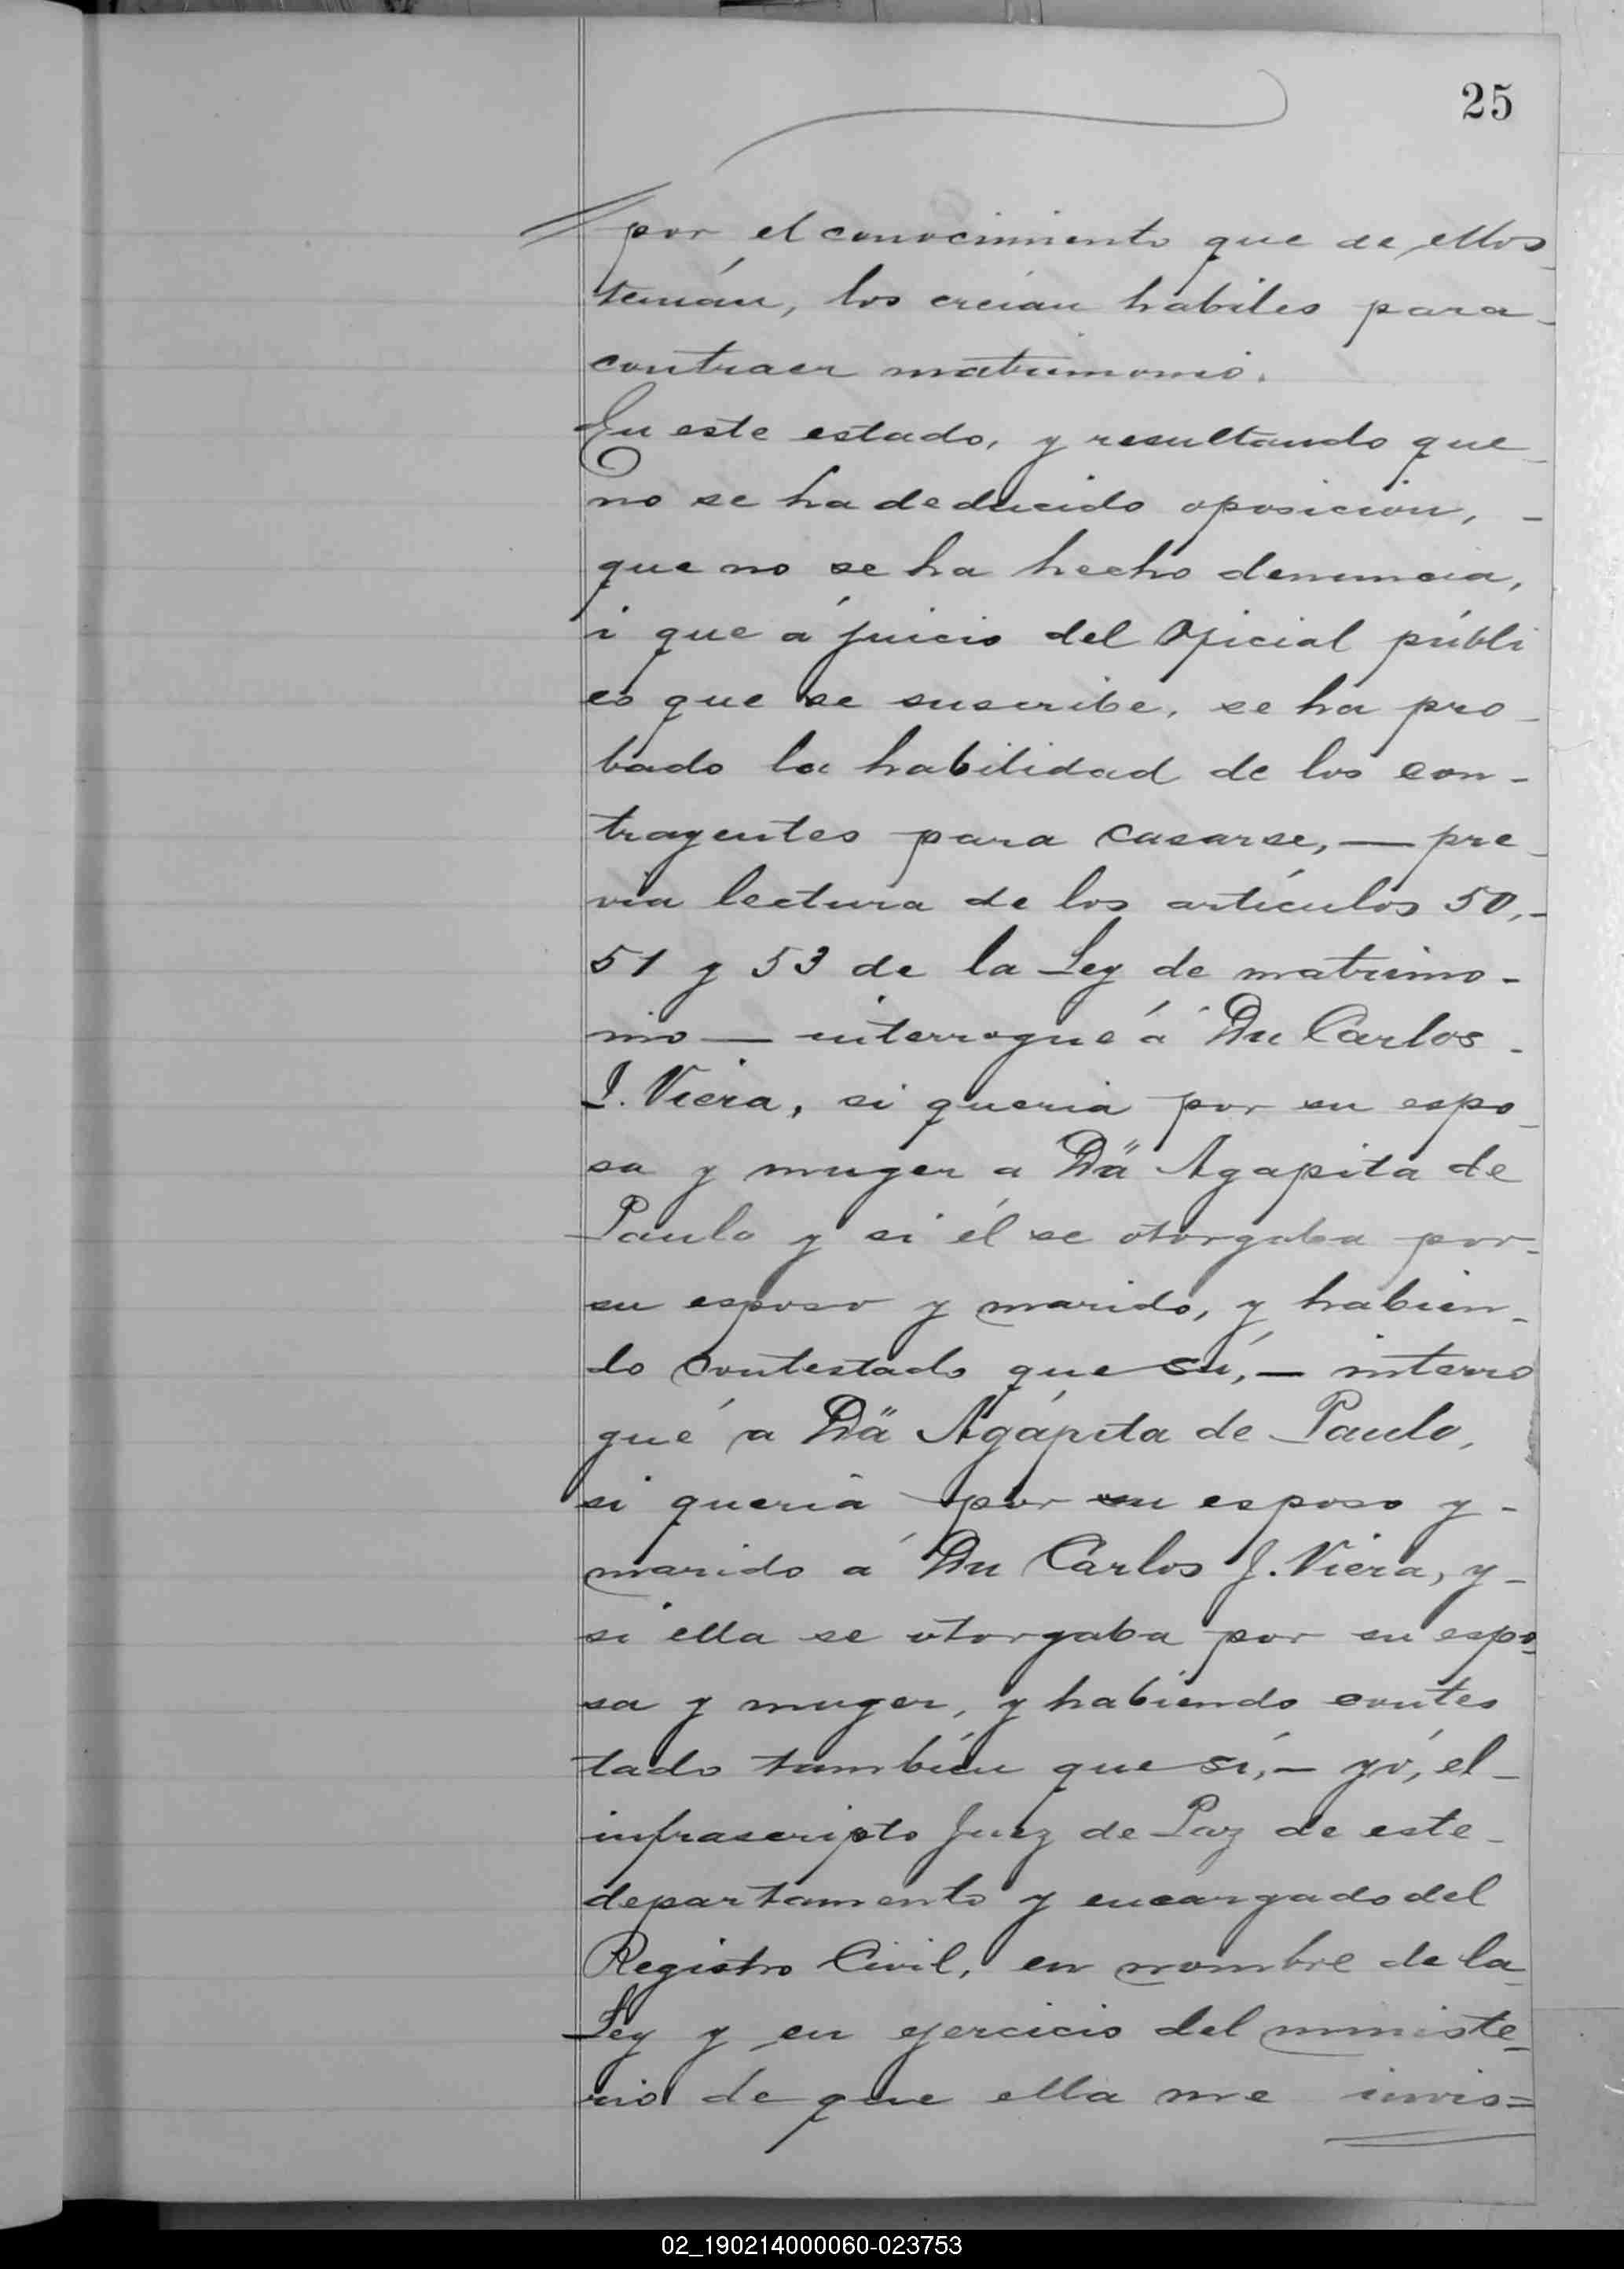 25
por el conocimiento que de ellos
tenían, los creían habiles para
contraer matrimonio.
En este estado, y resultando que
no se ha deducido oposicion, -
que no se ha hecho denuncia,
i que á juicio del Oficial públi
co que se suscribe, se ha pro-
bado la habilidad de los con-
trayentes para casarse, — pre-
via lectura de los artículos 50,-
51 y 53 de la Ley de matrimo-
nio — interrogué á Dn Carlos
J. Viera, si queria por su espo-
sa y muger a Da Agapita de
Paulo y si él se otorgaba por-
su esposo y marido, y habien-
do contestado que sí, — interro
gué a Da Agápita de Paulo,
si queria por su esposo y -
marido á Dn Carlos J. Viera, y -
si ella se otorgaba por su espo-
sa y muger, y habiendo contes
tado también que sí, — yó, el -
infrascripto Juez de Paz de este -
departamento y encargado del
Registro Civil, en nombre de la
Ley y en ejercicio del ministe-
rio de que ella me invis=
02_190214000060-023753